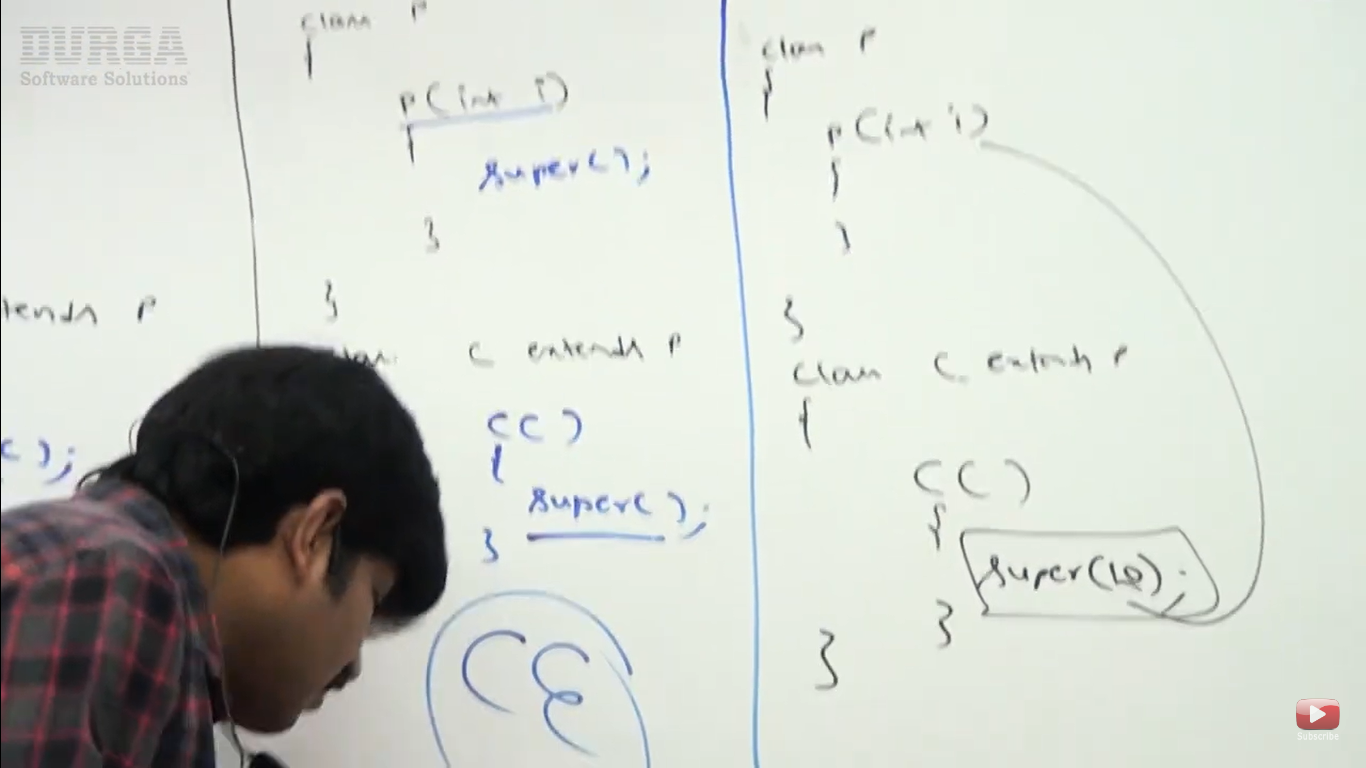 DURGA
Software Solutions
tends P
( );
class P
{
P(int i)
{
super();
}
}
C extends P
C( )
{
super( );
}
CE
class P
{
P(int i)
{
}
}
class C extends P
{
C( )
{
super(10);
}
}
Subscribe